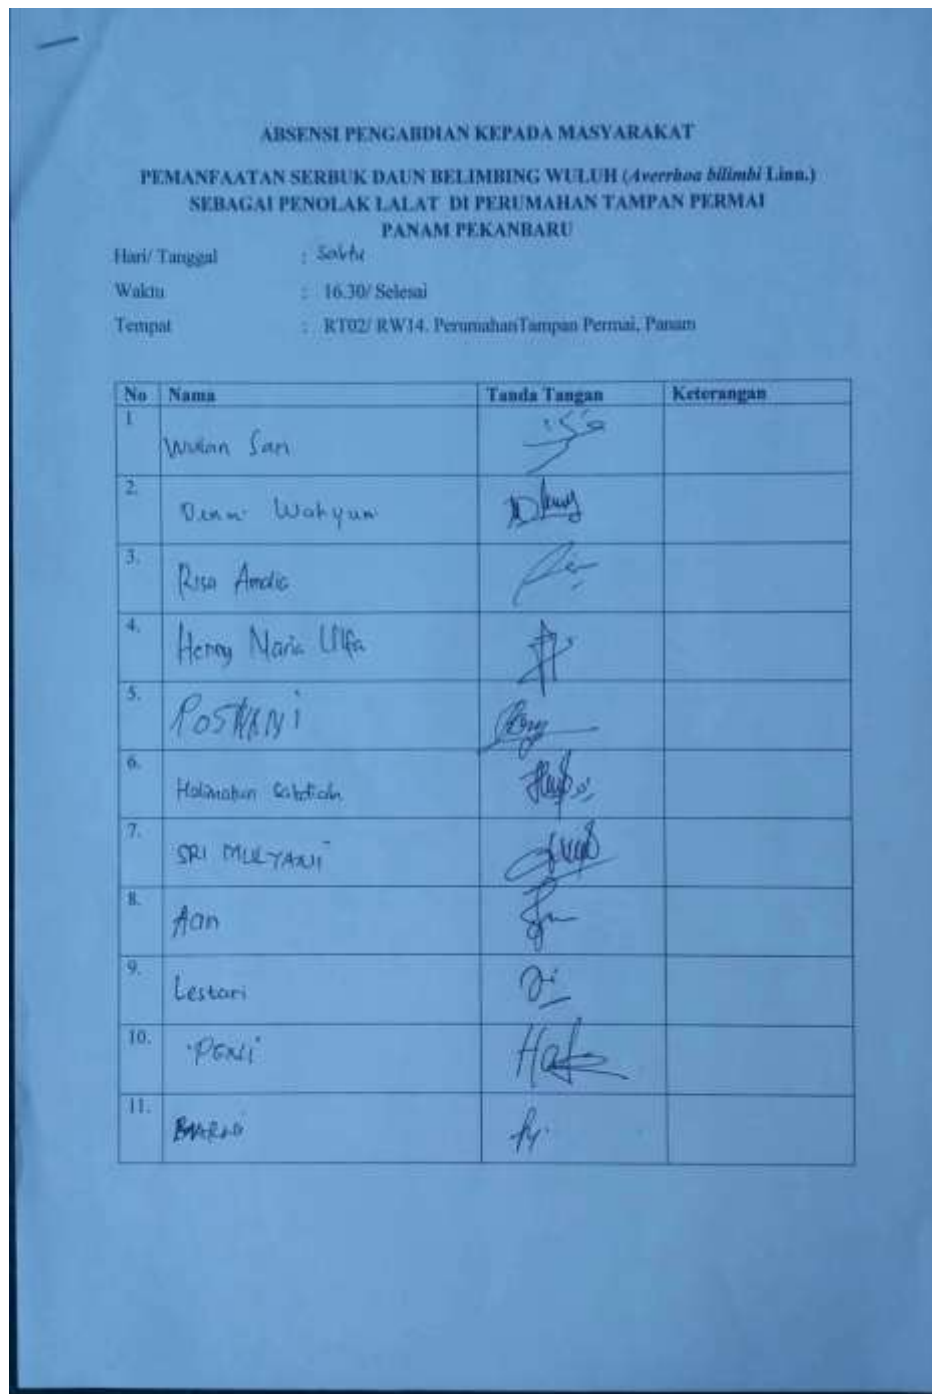 ABSENSI PENGABDIAN KEPADA MASYARAKAT
PEMANFAATAN SERBUK DAUN BELIMBING WULUH (Averrhoa bilimbi Linn.)
SEBAGAI PENOLAK LALAT DI PERUMAHAN TAMPAN PERMAI
PANAM PEKANBARU
Hari/ Tanggal : Sabtu
Waktu : 16.30/ Selesai
Tempat : RT02/ RW14. PerumahanTampan Permai, Panam
No Nama Tanda Tangan Keterangan
1 Wulan Sari
2. Wahyuni
3. Risa Amelia
4. Henny Maria Ulfa
5.
6. Halimatun Sakdiah
7. SRI MULYANI
8. Aan
9. Lestari
10.
11.